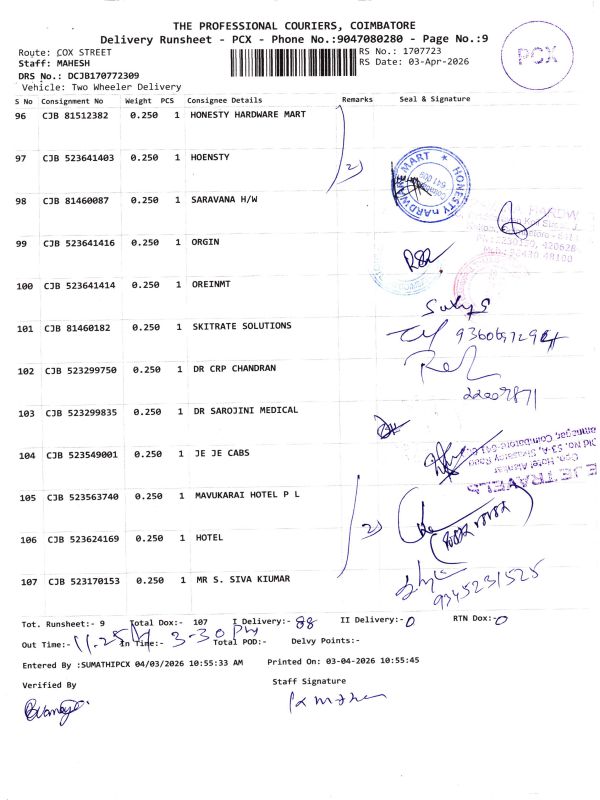 THE PROFESSIONAL COURIERS, COIMBATORE
Delivery Runsheet - PCX - Phone No.:9047080280 - Page No.:9
Route: COX STREET
RS No.: 1707723
Staff: MAHESH
RS Date: 03-Apr-2026
PCX
DRS No.: DCJB170772309
Vehicle: Two Wheeler Delivery
S No Consignment No Weight PCS Consignee Details Remarks Seal & Signature
96 CJB 81512382 0.250 1 HONESTY HARDWARE MART
97 CJB 523641403 0.250 1 HOENSTY 2)
HONESTY HARDWARE MART
641 009
98 CJB 81460087 0.250 1 SARAVANA H/W
99 CJB 523641416 0.250 1 ORGIN
100 CJB 523641414 0.250 1 OREINMT
101 CJB 81460182 0.250 1 SKITRATE SOLUTIONS
102 CJB 523299750 0.250 1 DR CRP CHANDRAN
103 CJB 523299835 0.250 1 DR SAROJINI MEDICAL
104 CJB 523549001 0.250 1 JE JE CABS
E JE TRAVELS
105 CJB 523563740 0.250 1 MAVUKARAI HOTEL P L
106 CJB 523624169 0.250 1 HOTEL 2)
107 CJB 523170153 0.250 1 MR S. SIVA KIUMAR
9345231525
Tot. Runsheet:- 9 Total Dox:- 107 I Delivery:- 88 II Delivery:- 0 RTN Dox:- 0
Out Time:- 11.25 In Time:- 3-30 PM Total POD:- Delvy Points:-
Entered By :SUMATHIPCX 04/03/2026 10:55:33 AM Printed On: 03-04-2026 10:55:45
Verified By
Staff Signature